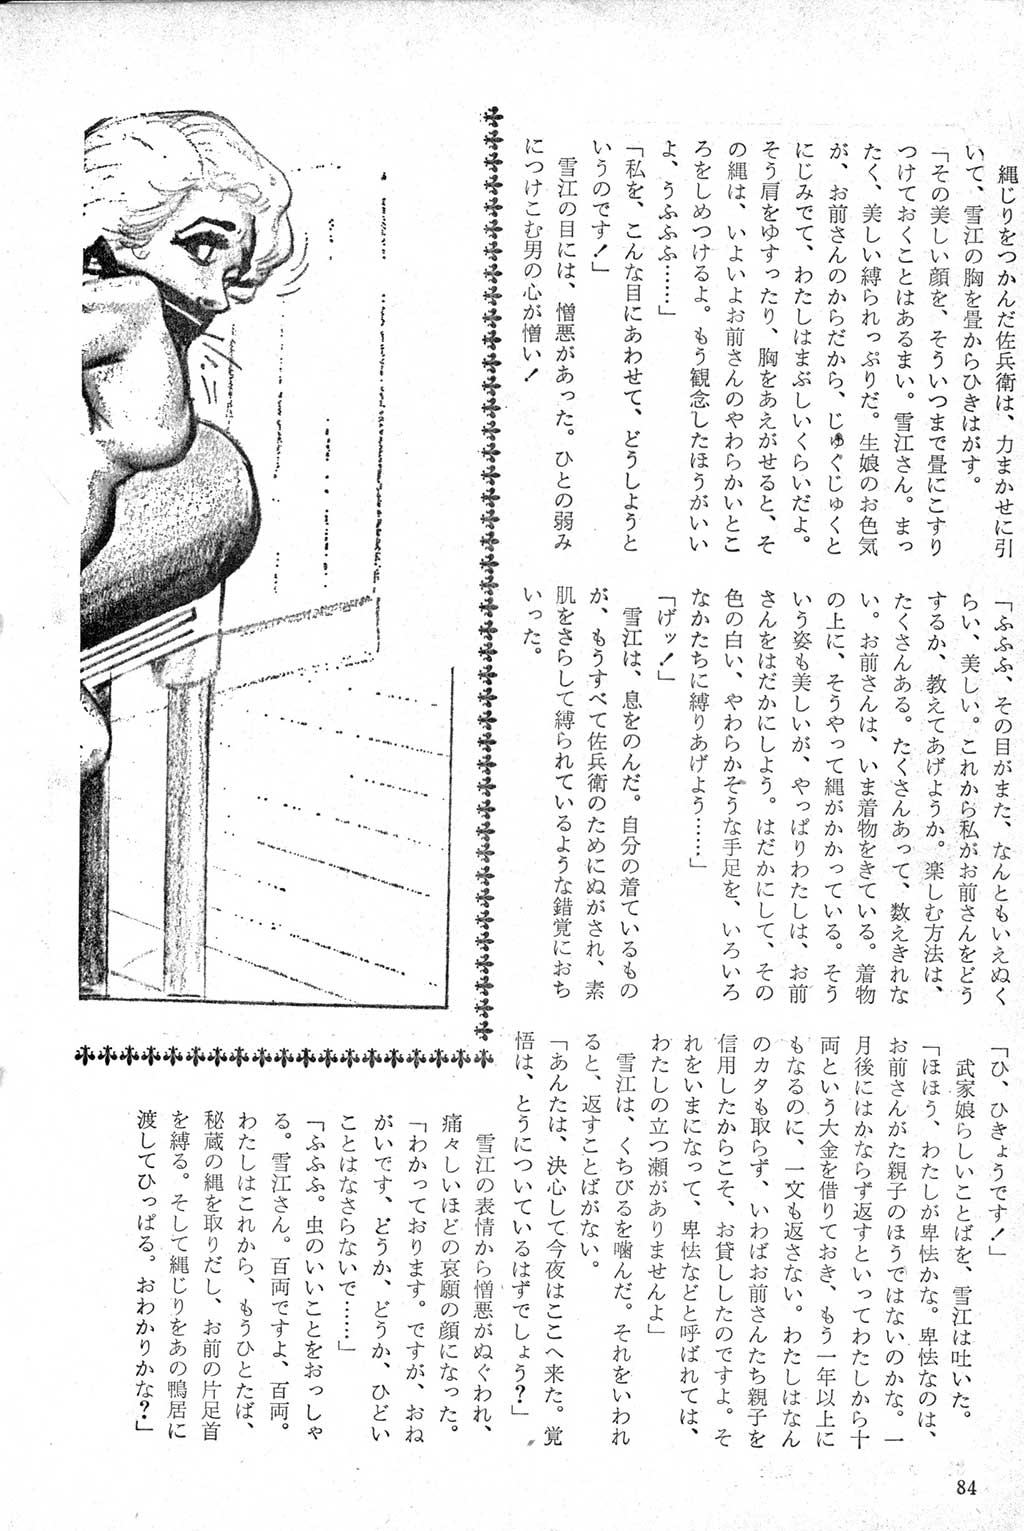 縄じりをつかんだ佐兵衛は、力まかせに引
いて、雪江の胸を畳からひきはがす。
「その美しい顔を、そういつまで畳にこすり
つけておくことはあるまい。雪江さん。まっ
たく、美しい縛られっぷりだ。生娘のお色気
が、お前さんのからだから、じゅくじゅくと
にじみでて、わたしはまぶしいくらいだよ。
そう肩をゆすったり、胸をあえがせると、そ
の縄は、いよいよお前さんのやわらかいとこ
ろをしめつけるよ。もう観念したほうがいい
よ、うふふふ……」
「私を、こんな目にあわせて、どうしようと
いうのです！」
雪江の目には、憎悪があった。ひとの弱み
につけこむ男の心が憎い！
「ふふふ、その目がまた、なんともいえぬく
らい、美しい。これから私がお前さんをどう
するか、教えてあげようか。楽しむ方法は、
たくさんある。たくさんあって、数えきれな
い。お前さんは、いま着物をきている。着物
の上に、そうやって縄がかかっている。そう
いう姿も美しいが、やっぱりわたしは、お前
さんをはだかにしよう。はだかにして、その
色の白い、やわらかそうな手足を、いろいろ
なかたちに縛りあげよう……」
「げッ！」
雪江は、息をのんだ。自分の着ているもの
が、もうすべて佐兵衛のためにぬがされ、素
肌をさらして縛られているような錯覚におち
いった。
「ひ、ひきょうです！」
武家娘らしいことばを、雪江は吐いた。
「ほほう、わたしが卑怯かな。卑怯なのは、
お前さんがた親子のほうではないのかな。一
月後にはかならず返すといってわたしから十
両という大金を借りておき、もう一年以上に
もなるのに、一文も返さない。わたしはなん
のカタも取らず、いわばお前さんたち親子を
信用したからこそ、お貸ししたのですよ。そ
れをいまになって、卑怯などと呼ばれては、
わたしの立つ瀬がありませんよ」
雪江は、くちびるを噛んだ。それをいわれ
ると、返すことばがない。
「あんたは、決心して今夜はここへ来た。覚
悟は、とうについているはずでしょう？」
雪江の表情から憎悪がぬぐわれ、
痛々しいほどの哀願の顔になった。
「わかっております。ですが、おね
がいです、どうか、どうか、ひどい
ことはなさらないで……」
「ふふふ。虫のいいことをおっしゃ
る。雪江さん。百両ですよ、百両。
わたしはこれから、もうひとたば、
秘蔵の縄を取りだし、お前の片足首
を縛る。そして縄じりをあの鴨居に
渡してひっぱる。おわかりかな？」
84